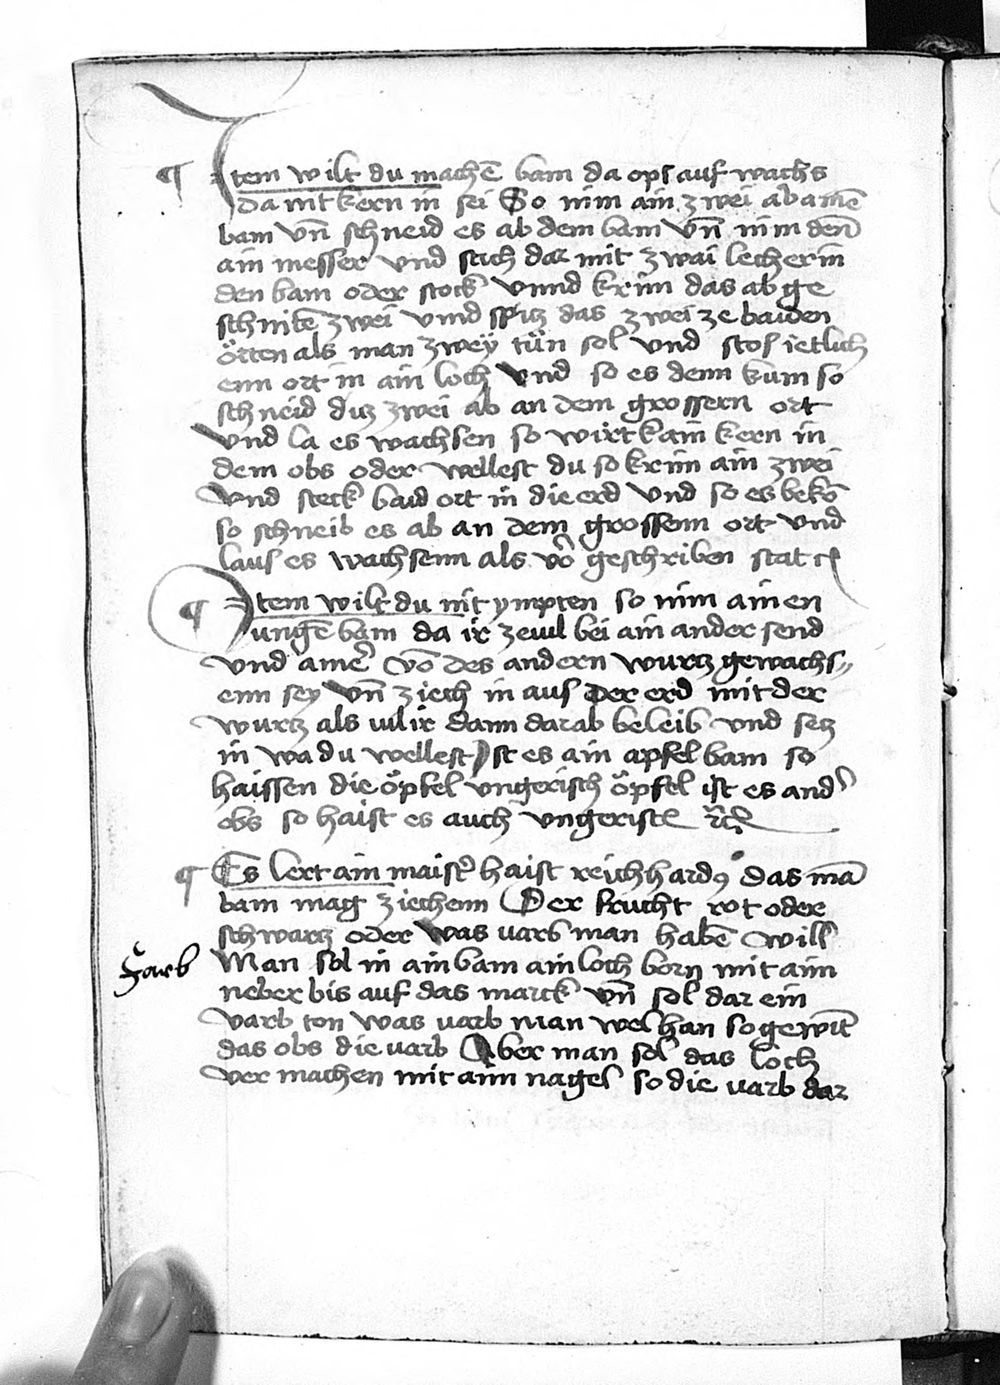 ¶ Item wilt du machē bam da ops auf wachs
da nit kern in sei So nim ain zwei ab amē
bam vn̄ schneid es ab dem bam vn̄ nim denē
ain messer vnd stich dar mit zwai lecher in
den bam oder stock vnnd krim das abge
schnitē zwei vnnd spitz das zwei ze baiden
örtten als man zweÿ tün sol vnd stos ietlich
enn ort in ain loch vnd so es denn kum so
schneid diz zwei ab an dem grossern ort
vnd la es wachsen so wirt kain kern in
dem obs oder wellest du so krim ain zwei
vnd steck baid ort in die erd vnd so es bekō
so schneib es ab an dem grossenn ort vnd
laus es wachsenn als vō geschriben stat rc
¶ Item wilt du nit ympten so nim ain en
iungē bam da ir zewl bei ain ander send
vnd amē vō des andern wurtz gewachs„
enn sey vn̄ ziech in aus der erd mit der
wurtz als vil ir dann darab beleib vnd setz
in wa du wellest Ist es ain apfel bam so
haissen die öpfel vngerisch öpfel ist es and̕
obs so haist es auch vngerisch rc
¶ Es lert ain maist̕ haist reichhardꝰ das mā
bam mag ziechenn Der frucht rot oder
schwartz oder was varb man habē will
Farb
Man sol in ain bam ain loch born mit aim
neber bis auf das marck vn̄ sol dar ein
varb ton was varb man wel han so gewīt
das obs die varb Aber man sol das loch
ver machen mit aim nagel so die varb dar